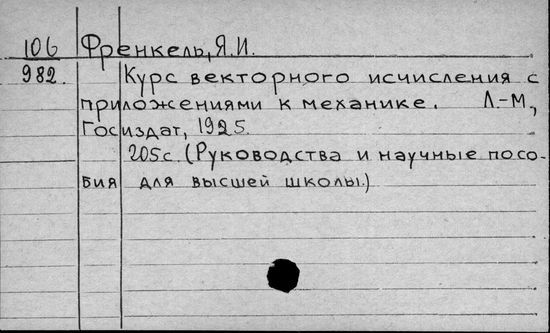 106 Френкель, Я.И.
982. Курс векторного исчисления с
приложениями к механике. Л.-М.,
Госиздат, 1925.
205с. (Руководства и научные посо-
бия для высшей школы.)